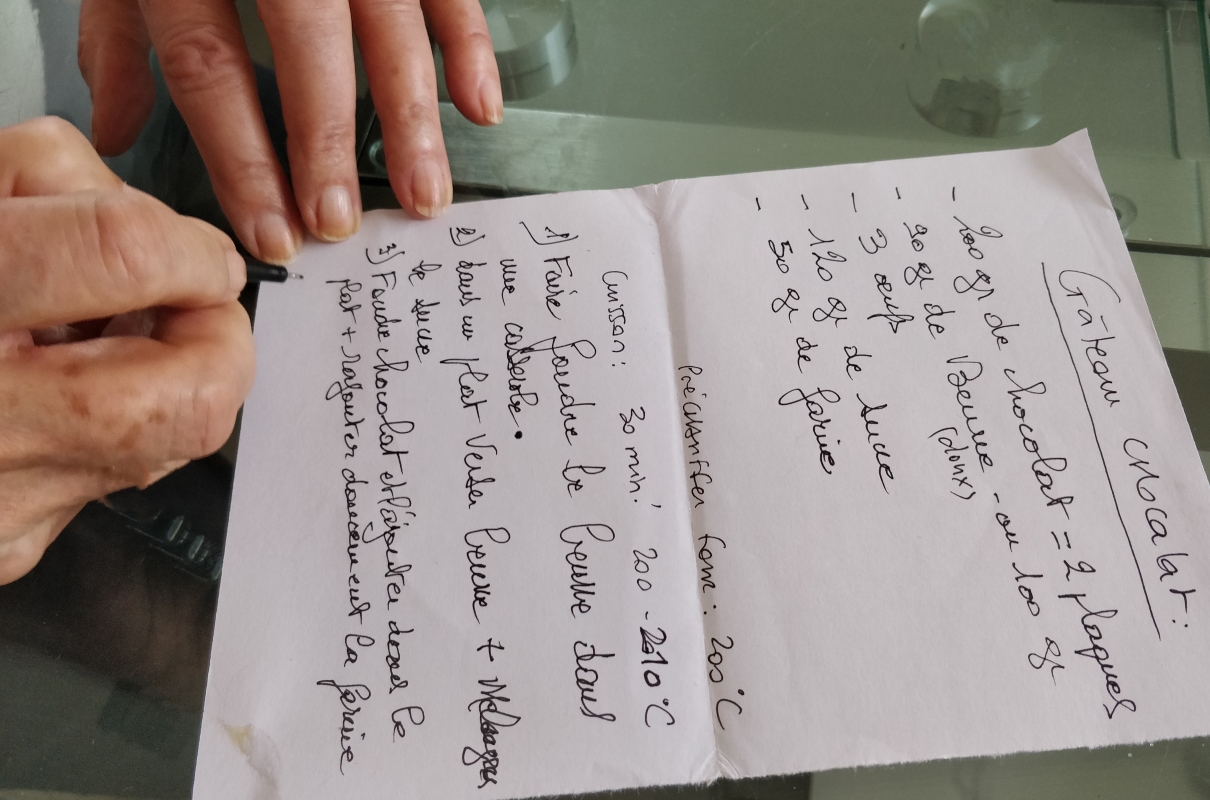 Gâteau chocolat:
- 200 gr de chocolat = 2 plaques
- 90 gr de Beurre - ou 100 gr
(doux)
- 3 œufs
- 120 gr de sucre
- 50 gr de farine
Préchauffer four: 200°C
Cuisson: 30 min! 200 - 210°C
1) Faire fondre le beurre dans
une casserole.
2) dans un plat verser beurre + Mélanger
le sucre
3) Fondre chocolat et l'ajouter dans le
plat + rajouter doucement la farine